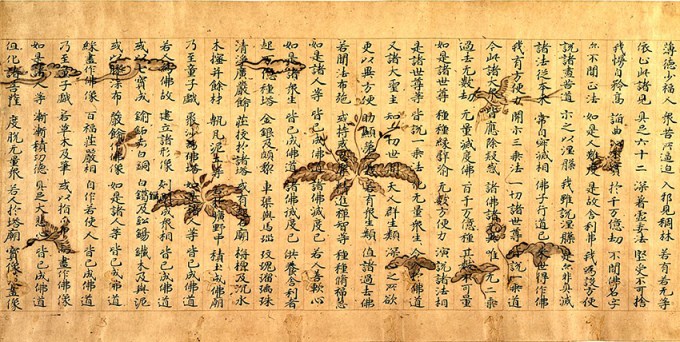 薄德少福人 衆苦所逼迫 入邪見稠林 若有若无等
依止此諸見 具足六十二 深著虛妄法 堅受不可捨
我慢自矜高 諂曲心不實 於千万億劫 不聞佛名字
亦不聞正法 如是人難度 是故舍利弗 我為設方便
說諸盡苦道 示之以涅槃 我雖說涅槃 是亦非真滅
諸法從本來 常自寂滅相 佛子行道已 來世得作佛
我有方便力 開示三乘法 一切諸世尊 皆說一乘道
今此諸大衆 皆應除疑惑 諸佛語無異 唯一无二乘
過去无數劫 无量滅度佛 百千万億種 其數不可量
如是諸世尊 種種緣譬喻 无數方便力 演說諸法相
是諸世尊等 皆說一乘法 化无量衆生 令入於佛道
又諸大聖主 知一切世間 天人群生類 深心之所欲
更以異方便 助顯第一義 若有衆生類 值諸過去佛
若聞法布施 或持戒忍辱 精進禪智等 種種修福慧
如是諸人等 皆已成佛道 諸佛滅度已 若人善軟心
如是諸衆生 皆已成佛道 諸佛滅度已 供養舍利者
起万億種塔 金銀及頗梨 車磲與馬瑙 玫瑰瑠璃珠
清淨廣嚴飾 莊校於諸塔 或有起石廟 栴檀及沈水
木樒并餘材 塼瓦泥土等 若於曠野中 積土成佛廟
乃至童子戲 聚沙為佛塔 如是諸人等 皆已成佛道
若人為佛故 建立諸形像 刻雕成衆相 皆已成佛道
或以七寶成 鍮鉐赤白銅 白鑞及鉛錫 鐵木及與泥
或以膠漆布 嚴飾作佛像 如是諸人等 皆已成佛道
綵畫作佛像 百福莊嚴相 自作若使人 皆已成佛道
乃至童子戲 若草木及筆 或以指爪甲 而畫作佛像
如是諸人等 漸漸積功德 具足大悲心 皆已成佛道
但化諸菩薩 度脫无量衆 若人於塔廟 寶像及畫像